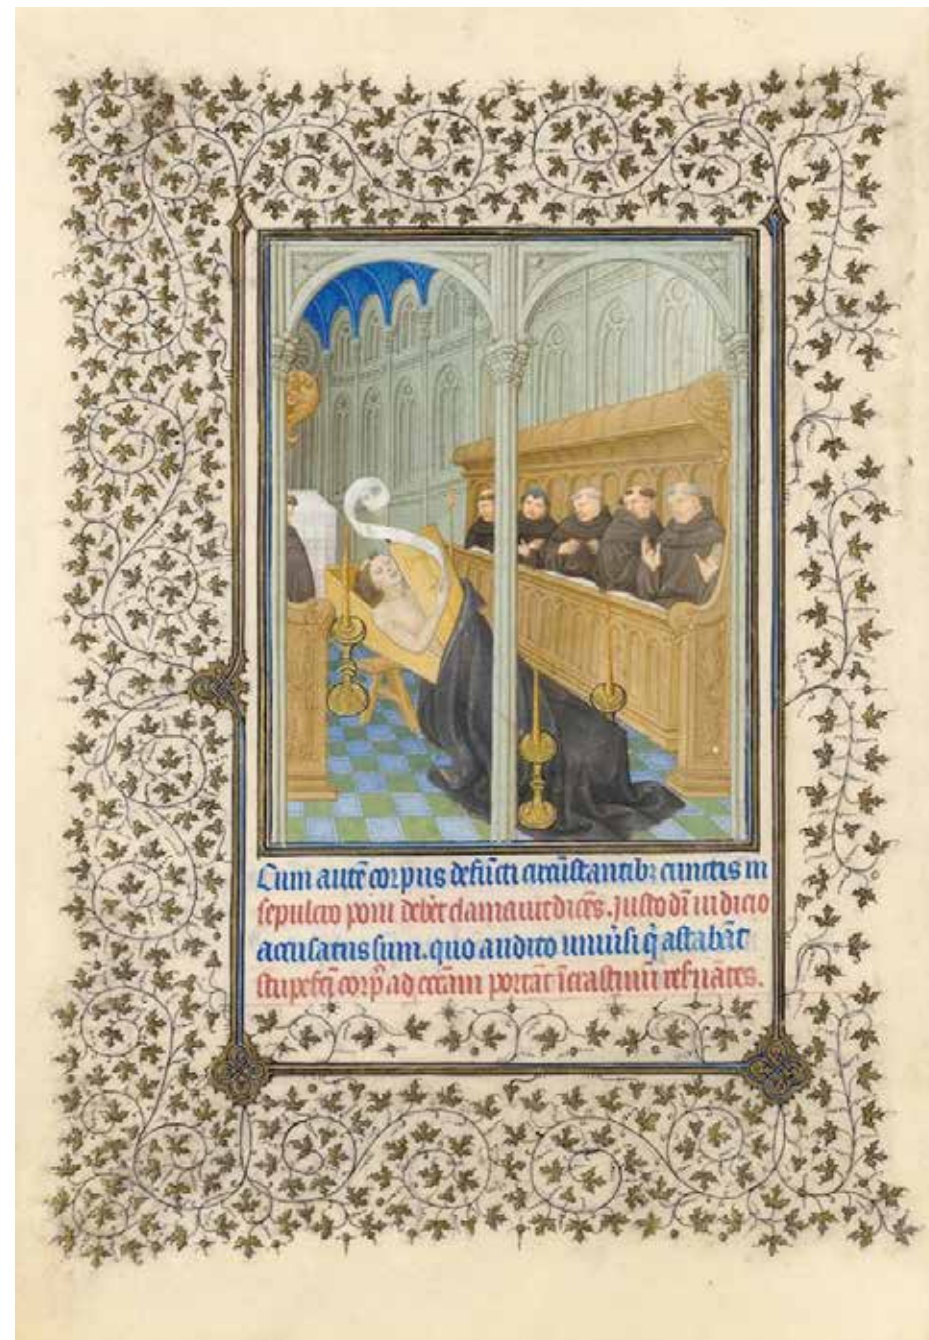 Cum autē corpus defūcti circūstantibꝰ cunctis in
sepulcro poni debēt clamauit dicēs. Justo dī iudicio
accusatus sum. quo audito uniūsi q̄ astabāt
stupefc̄i corpꝰ ad ecc̄am portāt ī crastinū resūātes.